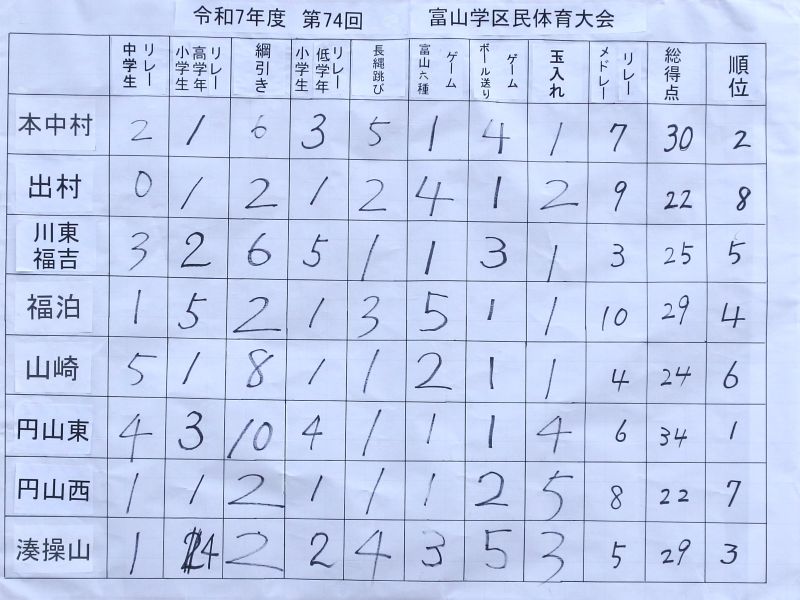 令和7年度 第74回 富山学区民体育大会
中学生リレー 小学生高学年リレー 綱引き 小学生低学年リレー 長縄跳び 富山六種ゲーム ボール送りゲーム 玉入れ メドレーリレー 総得点 順位
本中村 2 1 6 3 5 1 4 1 7 30 2
出村 0 1 2 1 2 4 1 2 9 22 8
川東福吉 3 2 6 5 1 1 3 1 3 25 5
福泊 1 5 2 1 3 5 1 1 10 29 4
山崎 5 1 8 1 1 2 1 1 4 24 6
円山東 4 3 10 4 1 1 1 4 6 34 1
円山西 1 1 2 1 1 1 2 5 8 22 7
湊操山 1 4 2 2 4 3 5 3 5 29 3